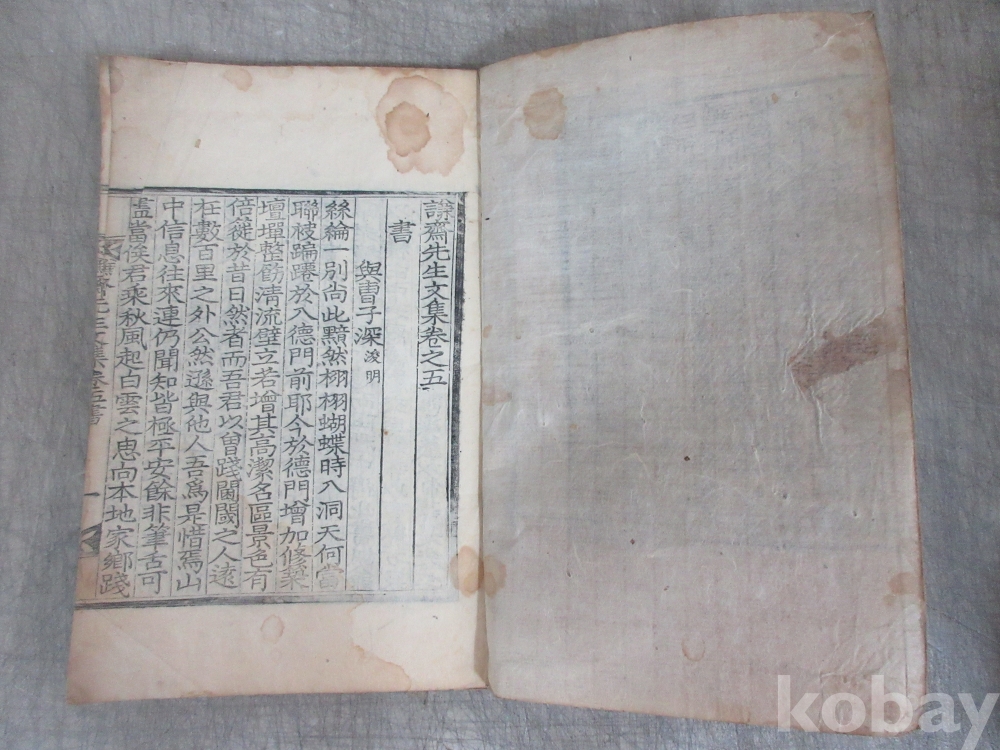 謙齋先生文集卷之五
書
與曺子深浚明
絲綸一別尚此黯然栩栩蝴蝶時八洞天何當
聯被蹁躚於入德門前耶今於德門增加修築
壇墠整飭清流壁立若增其高潔名區景色有
倍蓰於昔日然者而吾君以曾踐閫閾之人遠
在數百里之外公然遜與他人吾爲是惜焉山
中信息往來連仍聞知皆極平安餘非筆舌可
盡當俟君乘秋風起白雲之思向本地家鄉踐
謙齋先生文集卷五書 一
kobay